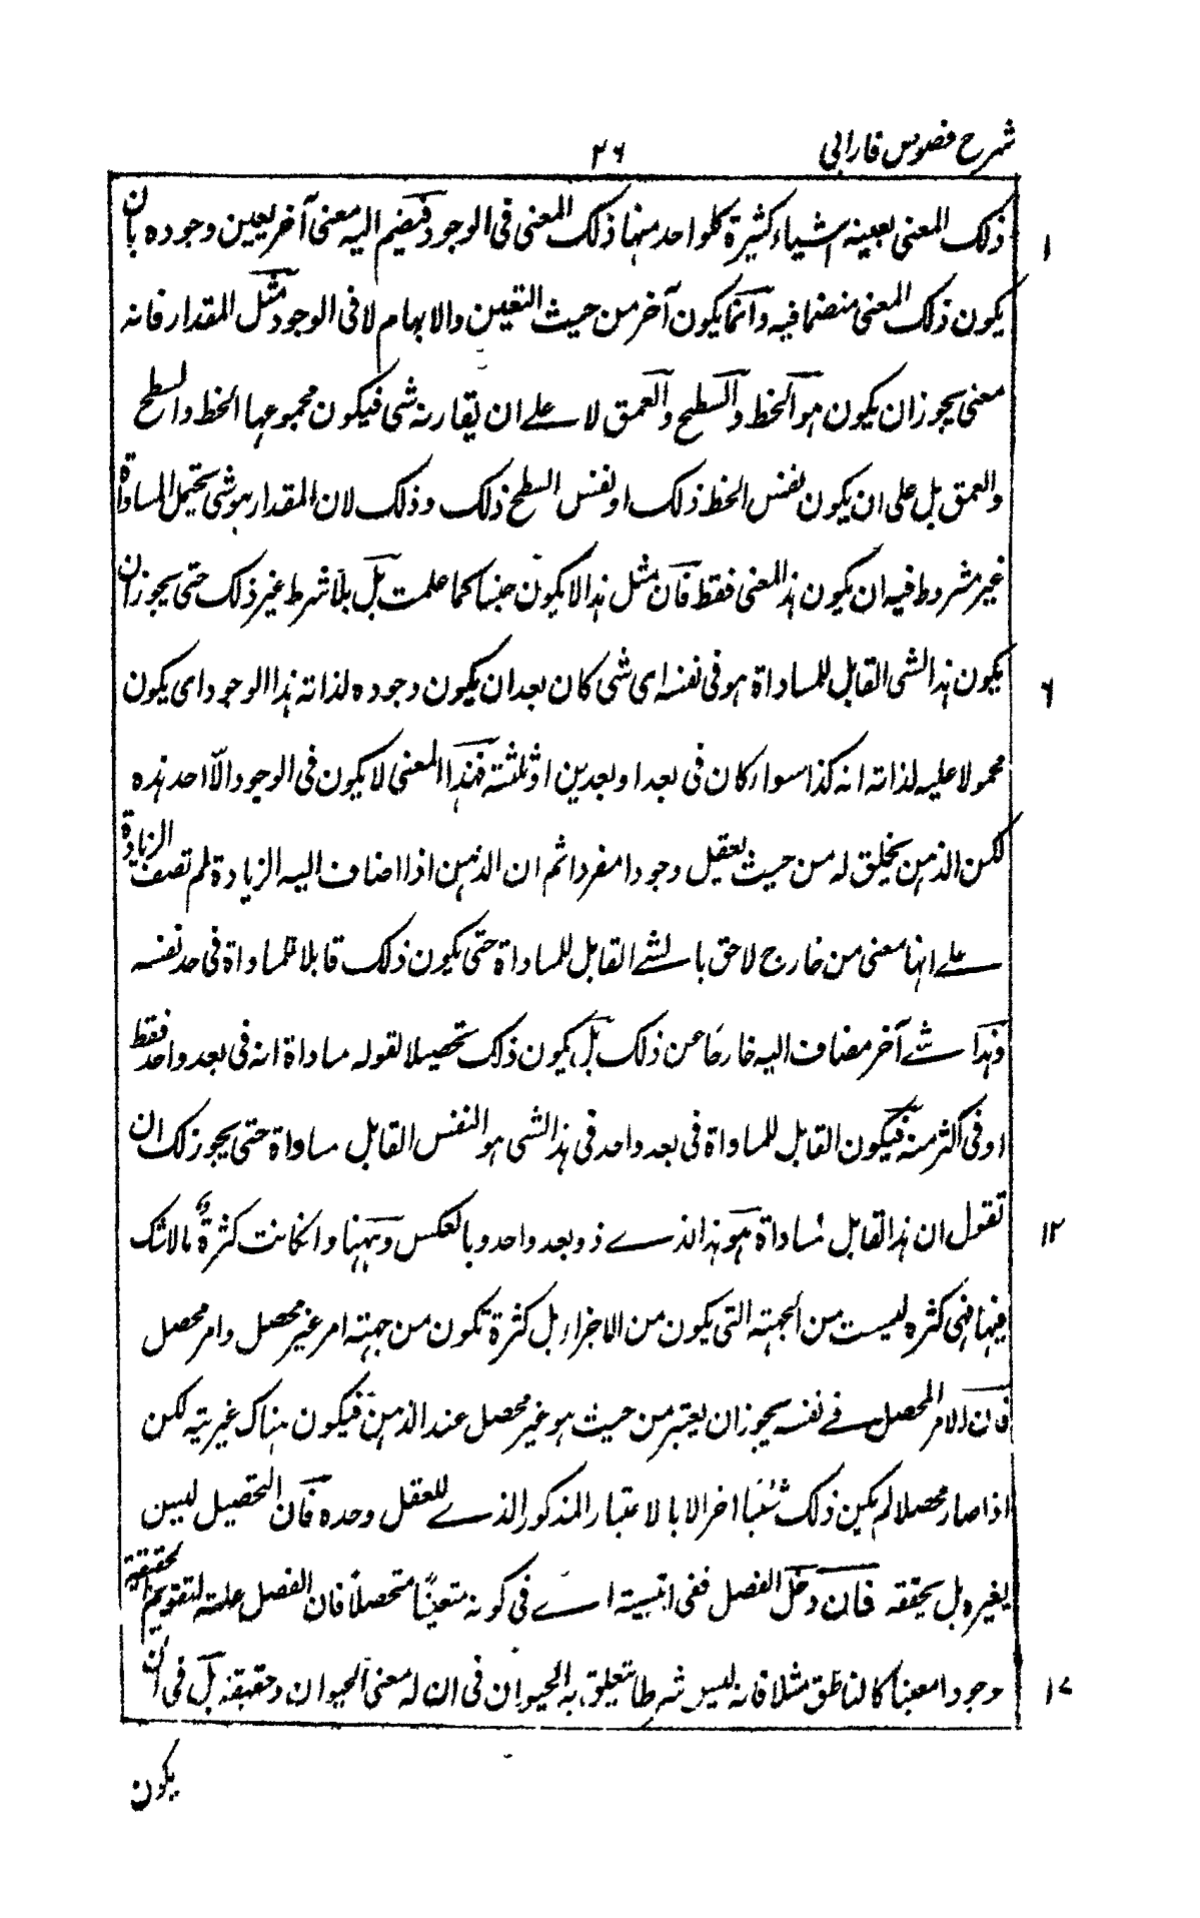 شرح فصوص فارابی
۲۶
ذلک المعنی بعینہ اشیاء کثیرۃ کلواحد منہا ذلک المعنی فی الوجود فیضم الیہ معنی آخر یعین وجودہ بان
۱
یکون ذلک المعنی منضما فیہ وانما یکون آخر من حیث التعین والابہام لا فی الوجود مثل المقدار فانہ
معنی یجوز ان یکون ہو الخط والسطح والعمق لا علے ان یقارنہ شی فیکون مجموعہا الخط والسطح
والعمق بل علی ان یکون نفس الخط ذلک او نفس السطح ذلک وذلک لان المقدار ہو شی یحتمل المساواۃ
غیر مشروط فیہ ان یکون ہذا المعنی فقط فان مثل ہذا لا یکون جنسا کما علمت بل بلا شرط غیر ذلک حتی یجوز ان
یکون ہذا الشی القابل للمساواۃ ہو فی نفسہ ای شی کان بعد ان یکون وجودہ لذاتہ ہذا الوجود ای یکون
۶
محمولا علیہ لذاتہ انہ کذا سواء کان فی بعد او بعدین او ثلثۃ فہذا المعنی لا یکون فی الوجود الّا احد ہذہ
لکن الذہن یخلق لہ من حیث یعقل وجودا مفردا ثم ان الذہن اذا اضاف الیہ الزیادۃ لم تضف الزیادۃ
علے انہا معنی من خارج لاحق بالشے القابل للمساواۃ حتی یکون ذلک قابلا للمساواۃ فی حد نفسہ
وہذا شے آخر مضاف الیہ خارجا عن ذلک بل یکون ذلک تحصیلا لقولہ مساواۃ انہ فی بعد واحد فقط
او فی اکثر منہ فیکون القابل للمساواۃ فی بعد واحد فی ہذا الشی ہو النفس القابل مساواۃ حتی یجوز لک ان
تقول ان ہذا القابل مساواۃ ہو ہذا الذے ذو بعد واحد وبالعکس وہہنا وانکانت کثرۃٌ مالا شک
۱۲
فیہا فہی کثرہ لیست من الجہتہ التی یکون من الاجزاء بل کثرۃ تکون من جہتہ امر غیر محصل وامر محصل
فان الامر المحصل فے نفسہ یجوز ان یعتبر من حیث ہو غیر محصل عند الذہن فیکون ہناک غیریتہ لکن
اذا صار محصلا لم یکن ذلک شئیا اخر الا بالاعتبار المذکور الذے للعقل وحدہ فان التحصیل لیس
یغیرہ بل یحققہ فان دخل الفصل ففی انیتہ اے فی کونہ متعینًا متحصلاً فان الفصل علتہ لتقویم الحقیقتہ
وجودا معینا کالناطق مثلا فانہ لیس شرطا یتعلق بہ الحیوان فی ان لہ معنی الحیوان وحقیقتہ بل فی ان
۱۷
یکون